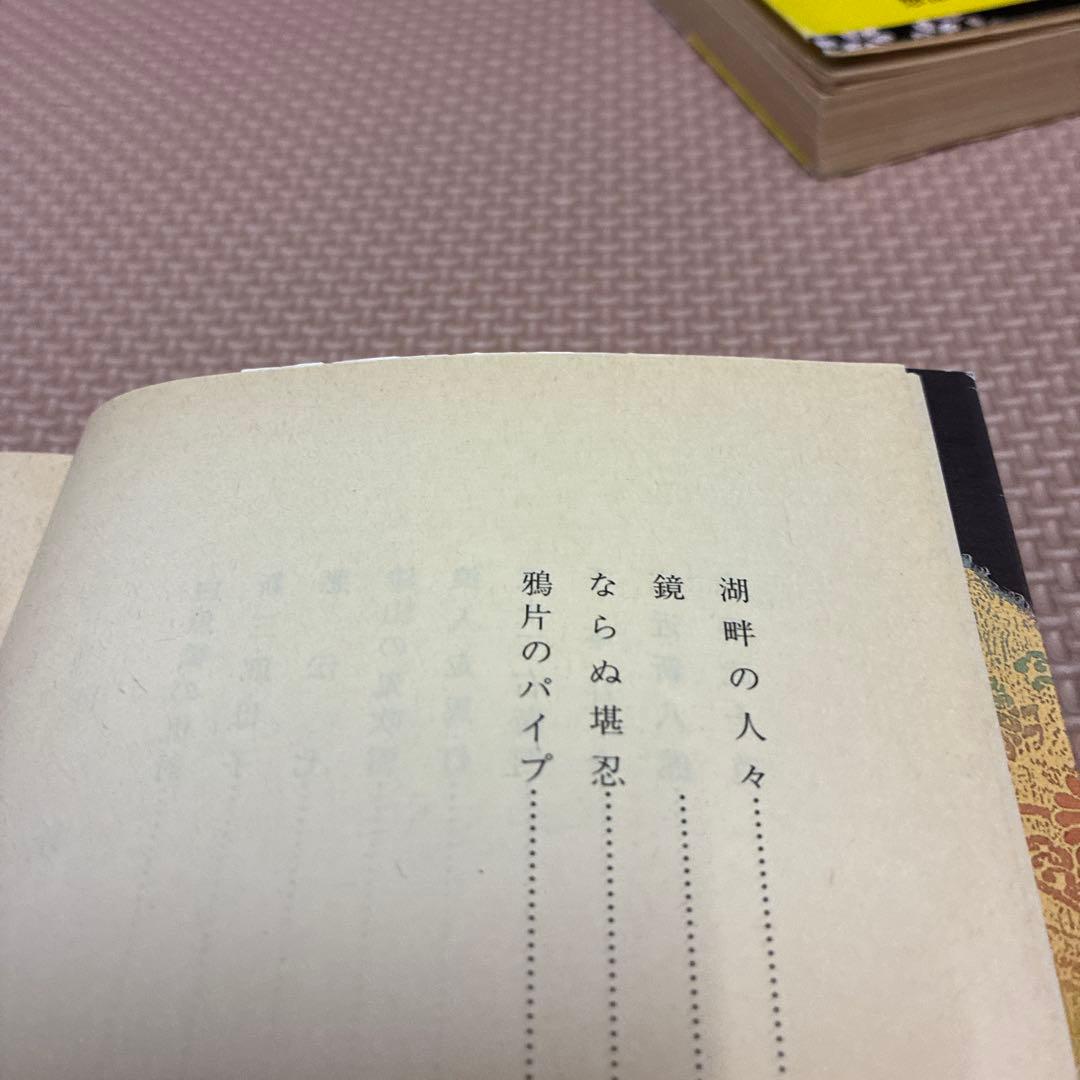 湖畔の人々
鏡
ならぬ堪忍
鴉片のパイプ